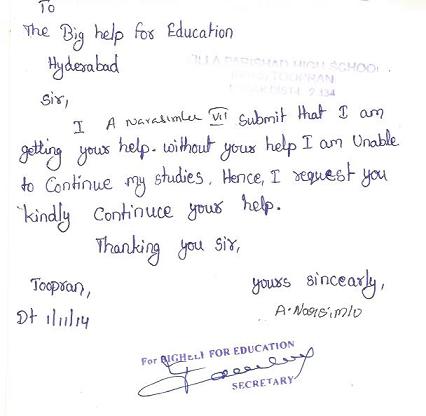 To
The Big help for Education
Hyderabad
ILLA PARISHAD HIGH SCHOOL
TOOPRAN
Sir,
I A Narasimlu VII submit that I am
getting your help. without your help I am Unable
to Continue my studies. Hence, I request you
kindly Continuce your help.
Thanking you Sir,
Toopran,
yours sincearly,
Dt 1/11/14
For BIGHELP FOR EDUCATION
SECRETARY